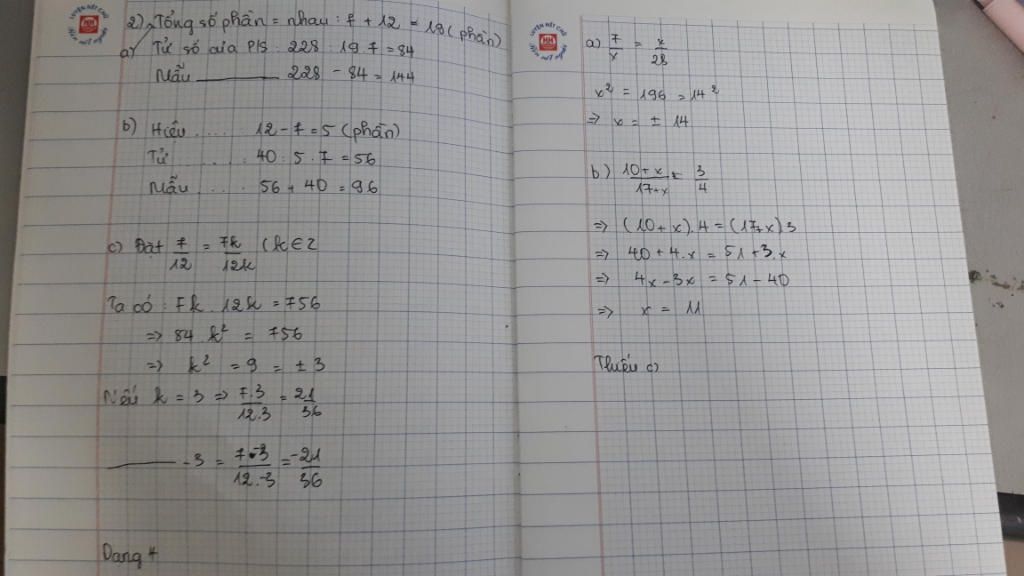 2) Tổng số phần = nhau: 7 + 12 = 19 (phần)
a) Tử số của P/S: 228 : 19 . 7 = 84
Mẫu ——— 228 - 84 = 144
b) Hiệu .... 12 - 7 = 5 (phần)
Tử ..... 40 : 5 . 7 = 56
Mẫu .... 56 + 40 = 96
c) Đặt 7/12 = 7k/12k (k ∈ Z
Ta có: 7k . 12k = 756
=> 84 . k² = 756
=> k² = 9 = ± 3
Nếu k = 3 => 7.3/12.3 = 21/36
——— -3 = 7.-3/12.-3 = -21/36
Dạng 4
a) 7/x = x/28
x² = 196 = 14²
=> x = ± 14
b) 10+x/17+x = 3/4
=> (10 + x).4 = (17+x)3
=> 40 + 4.x = 51 + 3.x
=> 4x - 3x = 51 - 40
=> x = 11
Thiếu c)